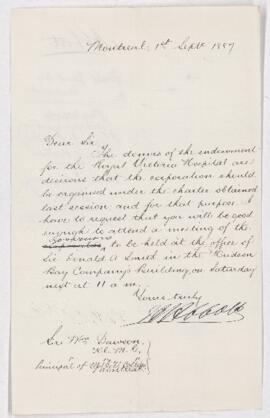 Montreal, 1st Sept. 1887
Dear Sir
The donors of the endowment
for the Royal Victoria Hospital are
desirous that the corporation should
be organised under the charter obtained
last session and for that purpose I
have to request that you will be good
enough to attend a meeting of the
Governors
to be held at the office of
Sir Donald A Smith in the Hudson
Bay Company's Building, on Saturday
next at 11 a.m.
Yours truly
JJC Abbott
Sir Wm Dawson,
K.C.M.G.,
Principal of McGill College
Montreal